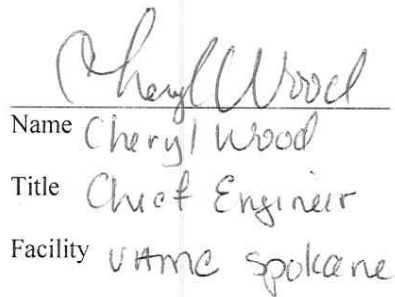 Cheryl Wood
Name Cheryl Wood
Title Chief Engineer
Facility VAMC Spokane